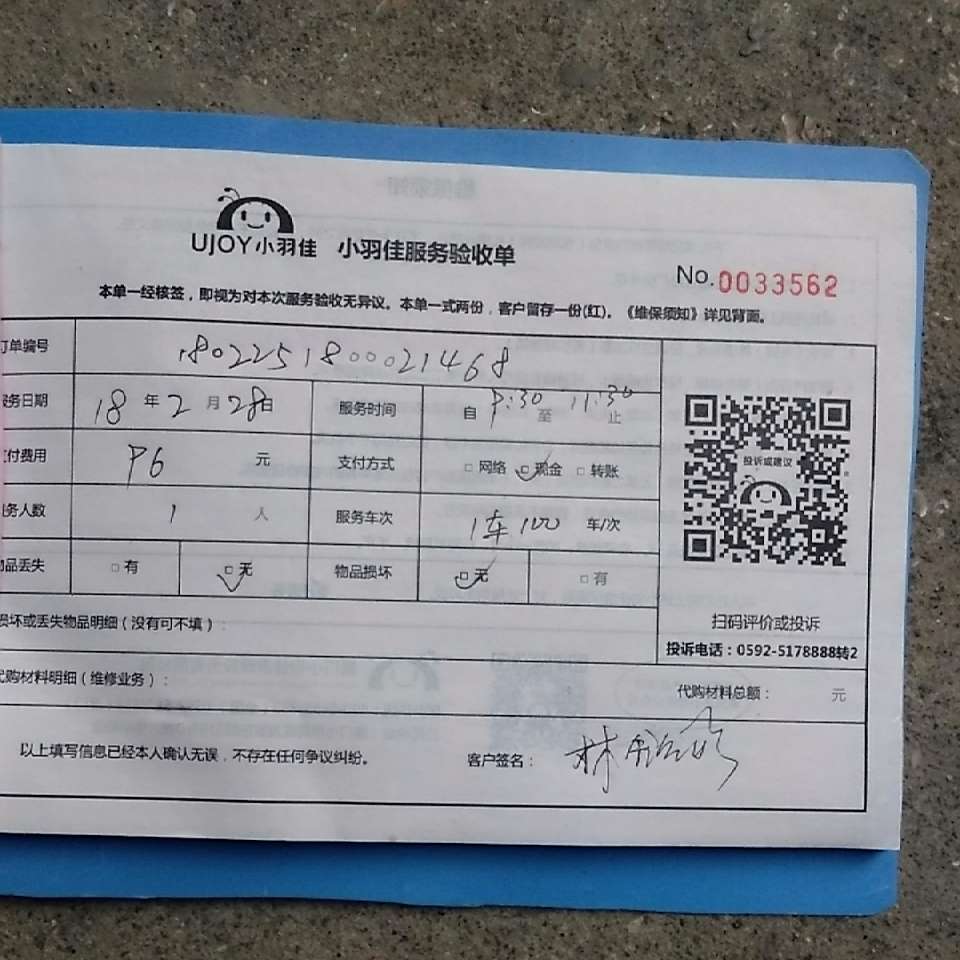 UJOY小羽佳 小羽佳服务验收单
No.0033562
本单一经核签，即视为对本次服务验收无异议。本单一式两份，客户留存一份(红)。《维保须知》详见背面。
订单编号 180225180021468
服务日期 18 年 2 月 28日 服务时间 自 9:30 至 11:30 止
支付费用 96 元 支付方式 □ 网络 □ 现金 □ 转账
投诉或建议
服务人数 1 人 服务车次 1车100 车/次
物品丢失 □ 有 □ 无 物品损坏 □ 无 □ 有
损坏或丢失物品明细（没有可不填）：
扫码评价或投诉
投诉电话：0592-5178888转2
代购材料明细（维修业务）： 代购材料总额： 元
以上填写信息已经本人确认无误，不存在任何争议纠纷。 客户签名： 林